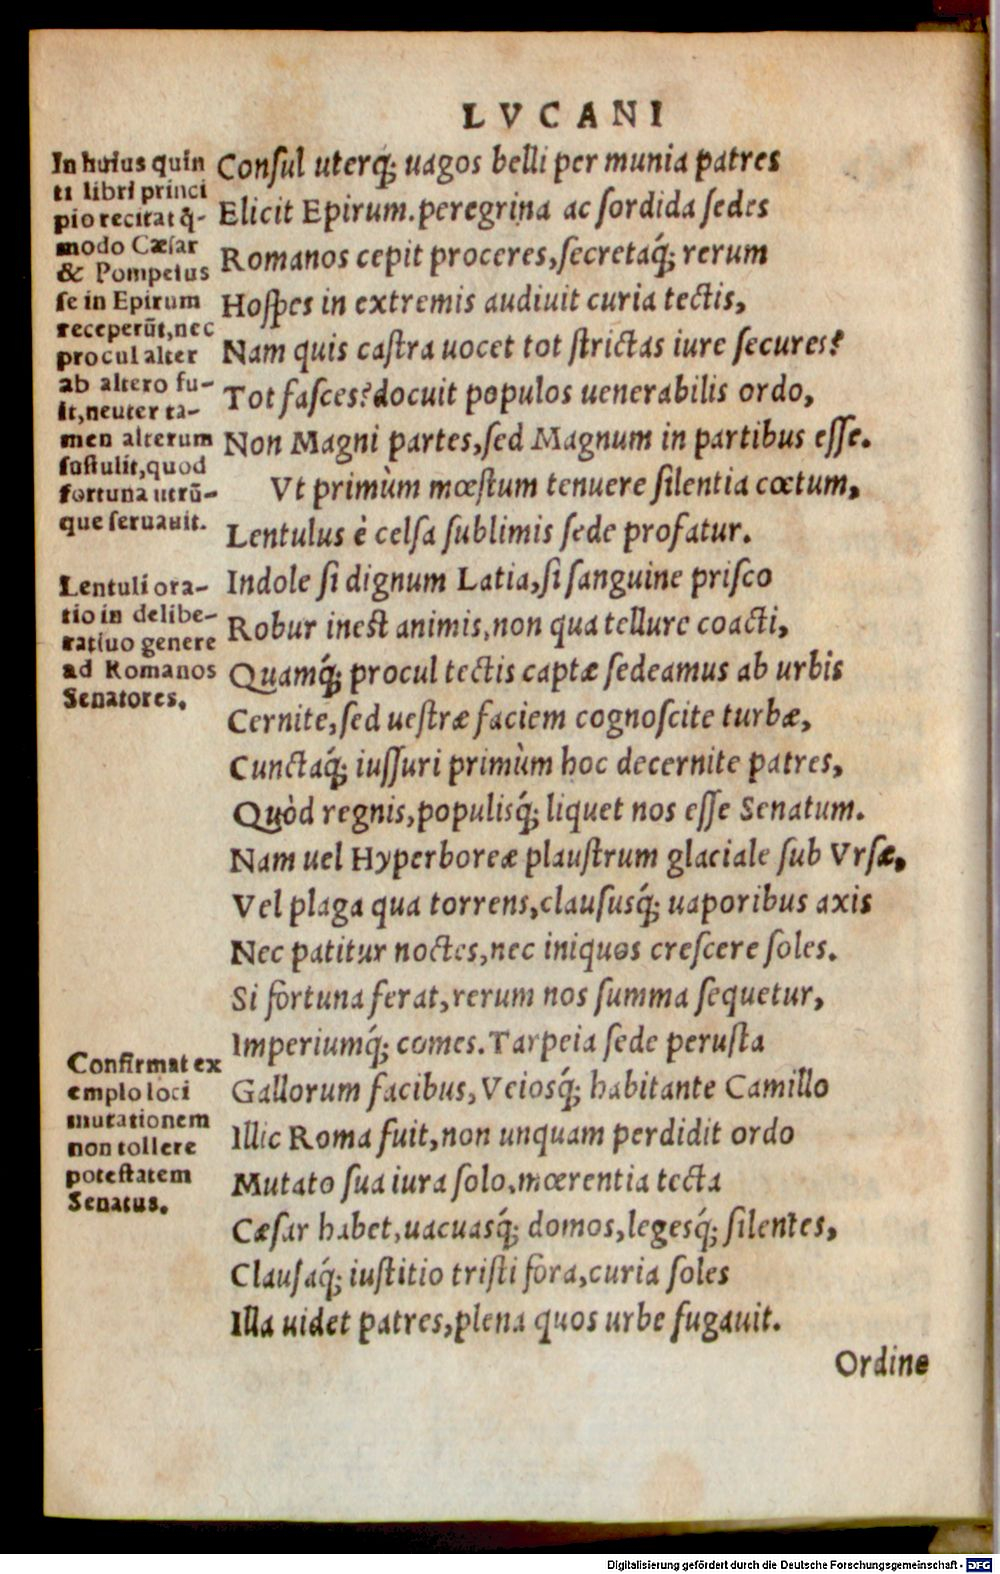 LVCANI
In huius quin
ti libri princi
pio recitat q̃-
modo Cæſar
& Pompeius
ſe in Epirum
receperũt, nec
procul alter
ab altero fu-
it, neuter ta-
men alterum
ſuſtulit, quod
fortuna utrũ-
que ſeruauit.
Lentuli ora-
tio in delibe-
ratiuo genere
ad Romanos
Senatores.
Confirmat ex
emplo loci
mutationem
non tollere
poteſtatem
Senatus.
Conſul uterq; uagos belli per munia patres
Elicit Epirum. peregrina ac ſordida ſedes
Romanos cepit proceres, ſecretaq́; rerum
Hoſpes in extremis audiuit curia tectis,
Nam quis caſtra uocet tot ſtrictas iure ſecures?
Tot faſces? docuit populos uenerabilis ordo,
Non Magni partes, ſed Magnum in partibus eſſe.
Vt primùm mœſtum tenuere ſilentia cœtum,
Lentulus è celſa ſublimis ſede profatur.
Indole ſi dignum Latia, ſi ſanguine priſco
Robur ineſt animis, non qua tellure coacti,
Quamq́; procul tectis captæ ſedeamus ab urbis
Cernite, ſed ueſtræ faciem cognoſcite turbæ,
Cunctaq́; iuſſuri primùm hoc decernite patres,
Quòd regnis, populisq́; liquet nos eſſe Senatum.
Nam uel Hyperboreæ plauſtrum glaciale ſub Vrſæ,
Vel plaga qua torrens, clauſusq́; uaporibus axis
Nec patitur noctes, nec iniquos creſcere ſoles.
Si fortuna ferat, rerum nos ſumma ſequetur,
Imperiumq́; comes. Tarpeia ſede peruſta
Gallorum facibus, Veiosq́; habitante Camillo
Illic Roma fuit, non unquam perdidit ordo
Mutato ſua iura ſolo, mœrentia tecta
Cæſar habet, uacuasq́; domos, legesq́; ſilentes,
Clauſaq́; iuſtitio triſti fora, curia ſoles
Illa uidet patres, plena quos urbe fugauit.
Ordine
Digitalisierung gefördert durch die Deutsche Forschungsgemeinschaft - DFG